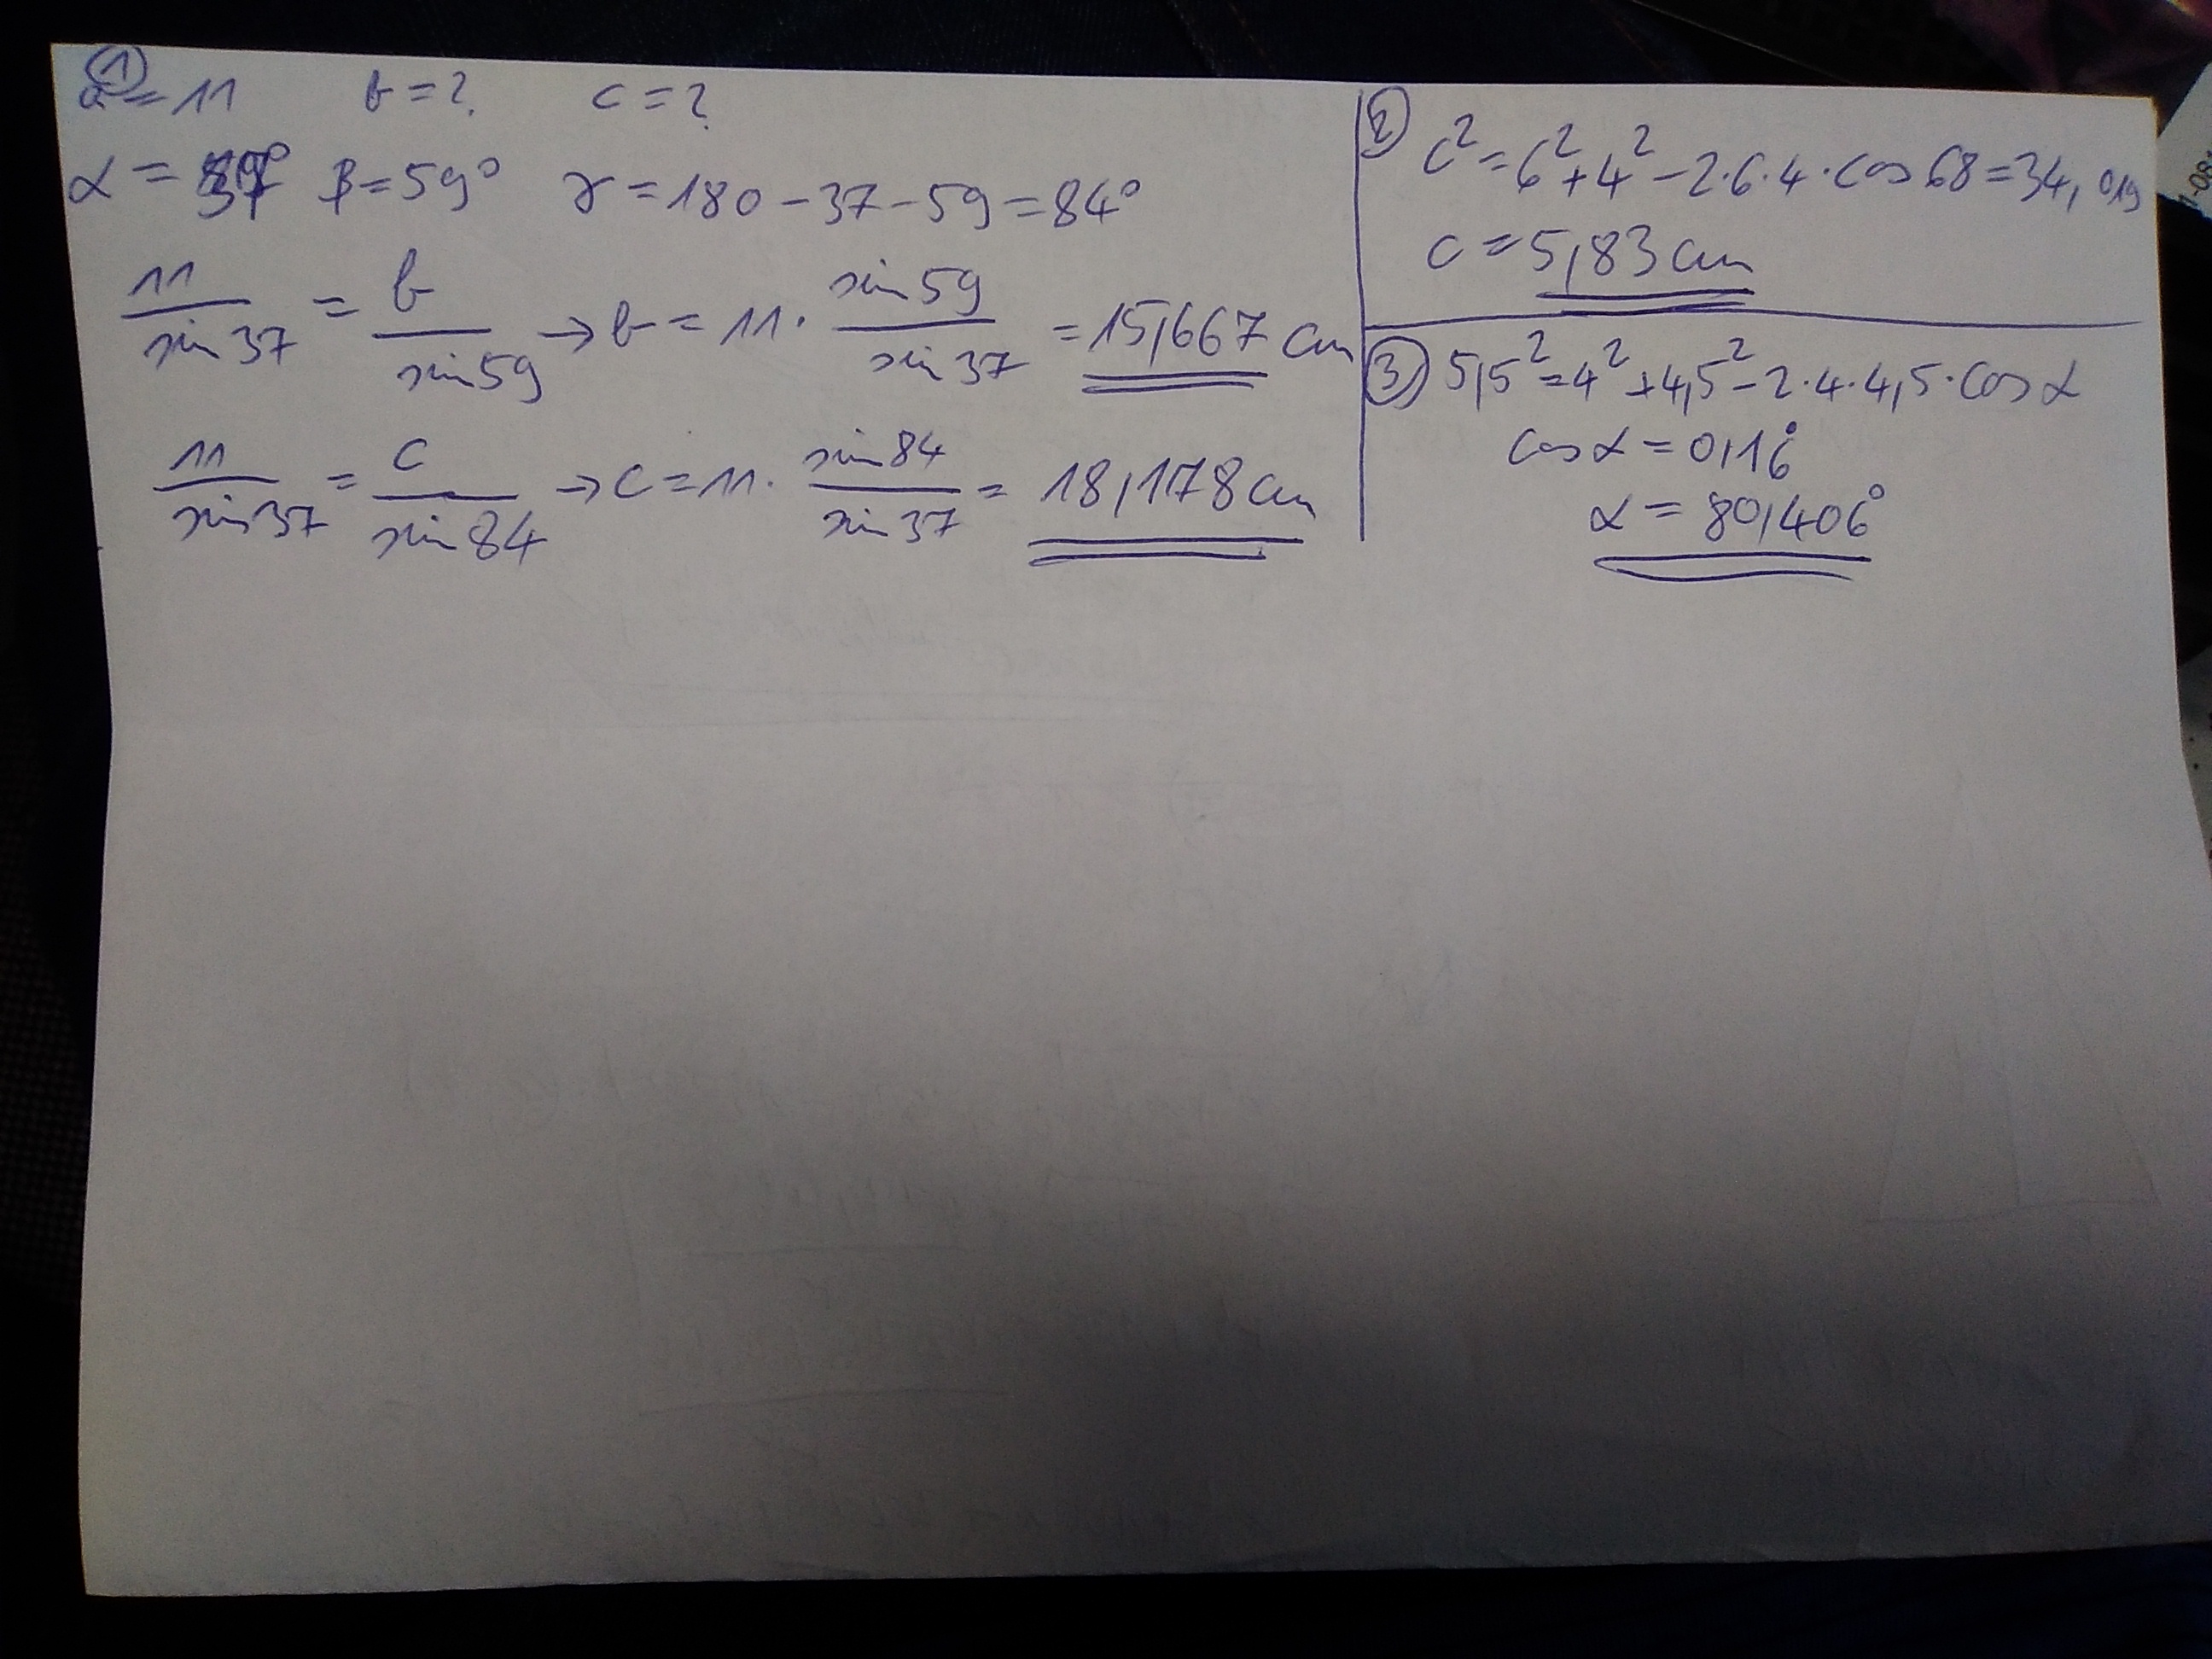 ① a = 11 b = ? c = ?
α = 37° β = 59° γ = 180 - 37 - 59 = 84°
11/sin 37 = b/sin 59 → b = 11 · sin 59/sin 37 = 15,667 cm
11/sin 37 = c/sin 84 → c = 11 · sin 84/sin 37 = 18,178 cm
② c² = 6² + 4² - 2·6·4·cos 68 = 34,019
c = 5,83 cm
③ 5,5² = 4² + 4,5² - 2·4·4,5·cos α
cos α = 0,16̇
α = 80,406°